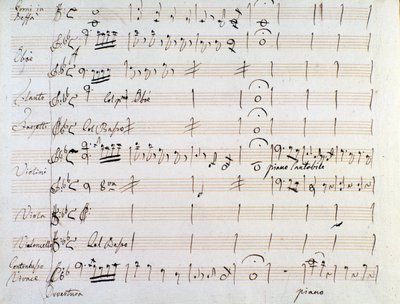 Corni in
Beffa
Oboè
Flauto
Col p.º Oboè
Fagotto
Col Basso
Violini
piano cantabile
8va
Viola
Violoncello
Col Basso
Contrabasso
Vivace
Overtura
piano